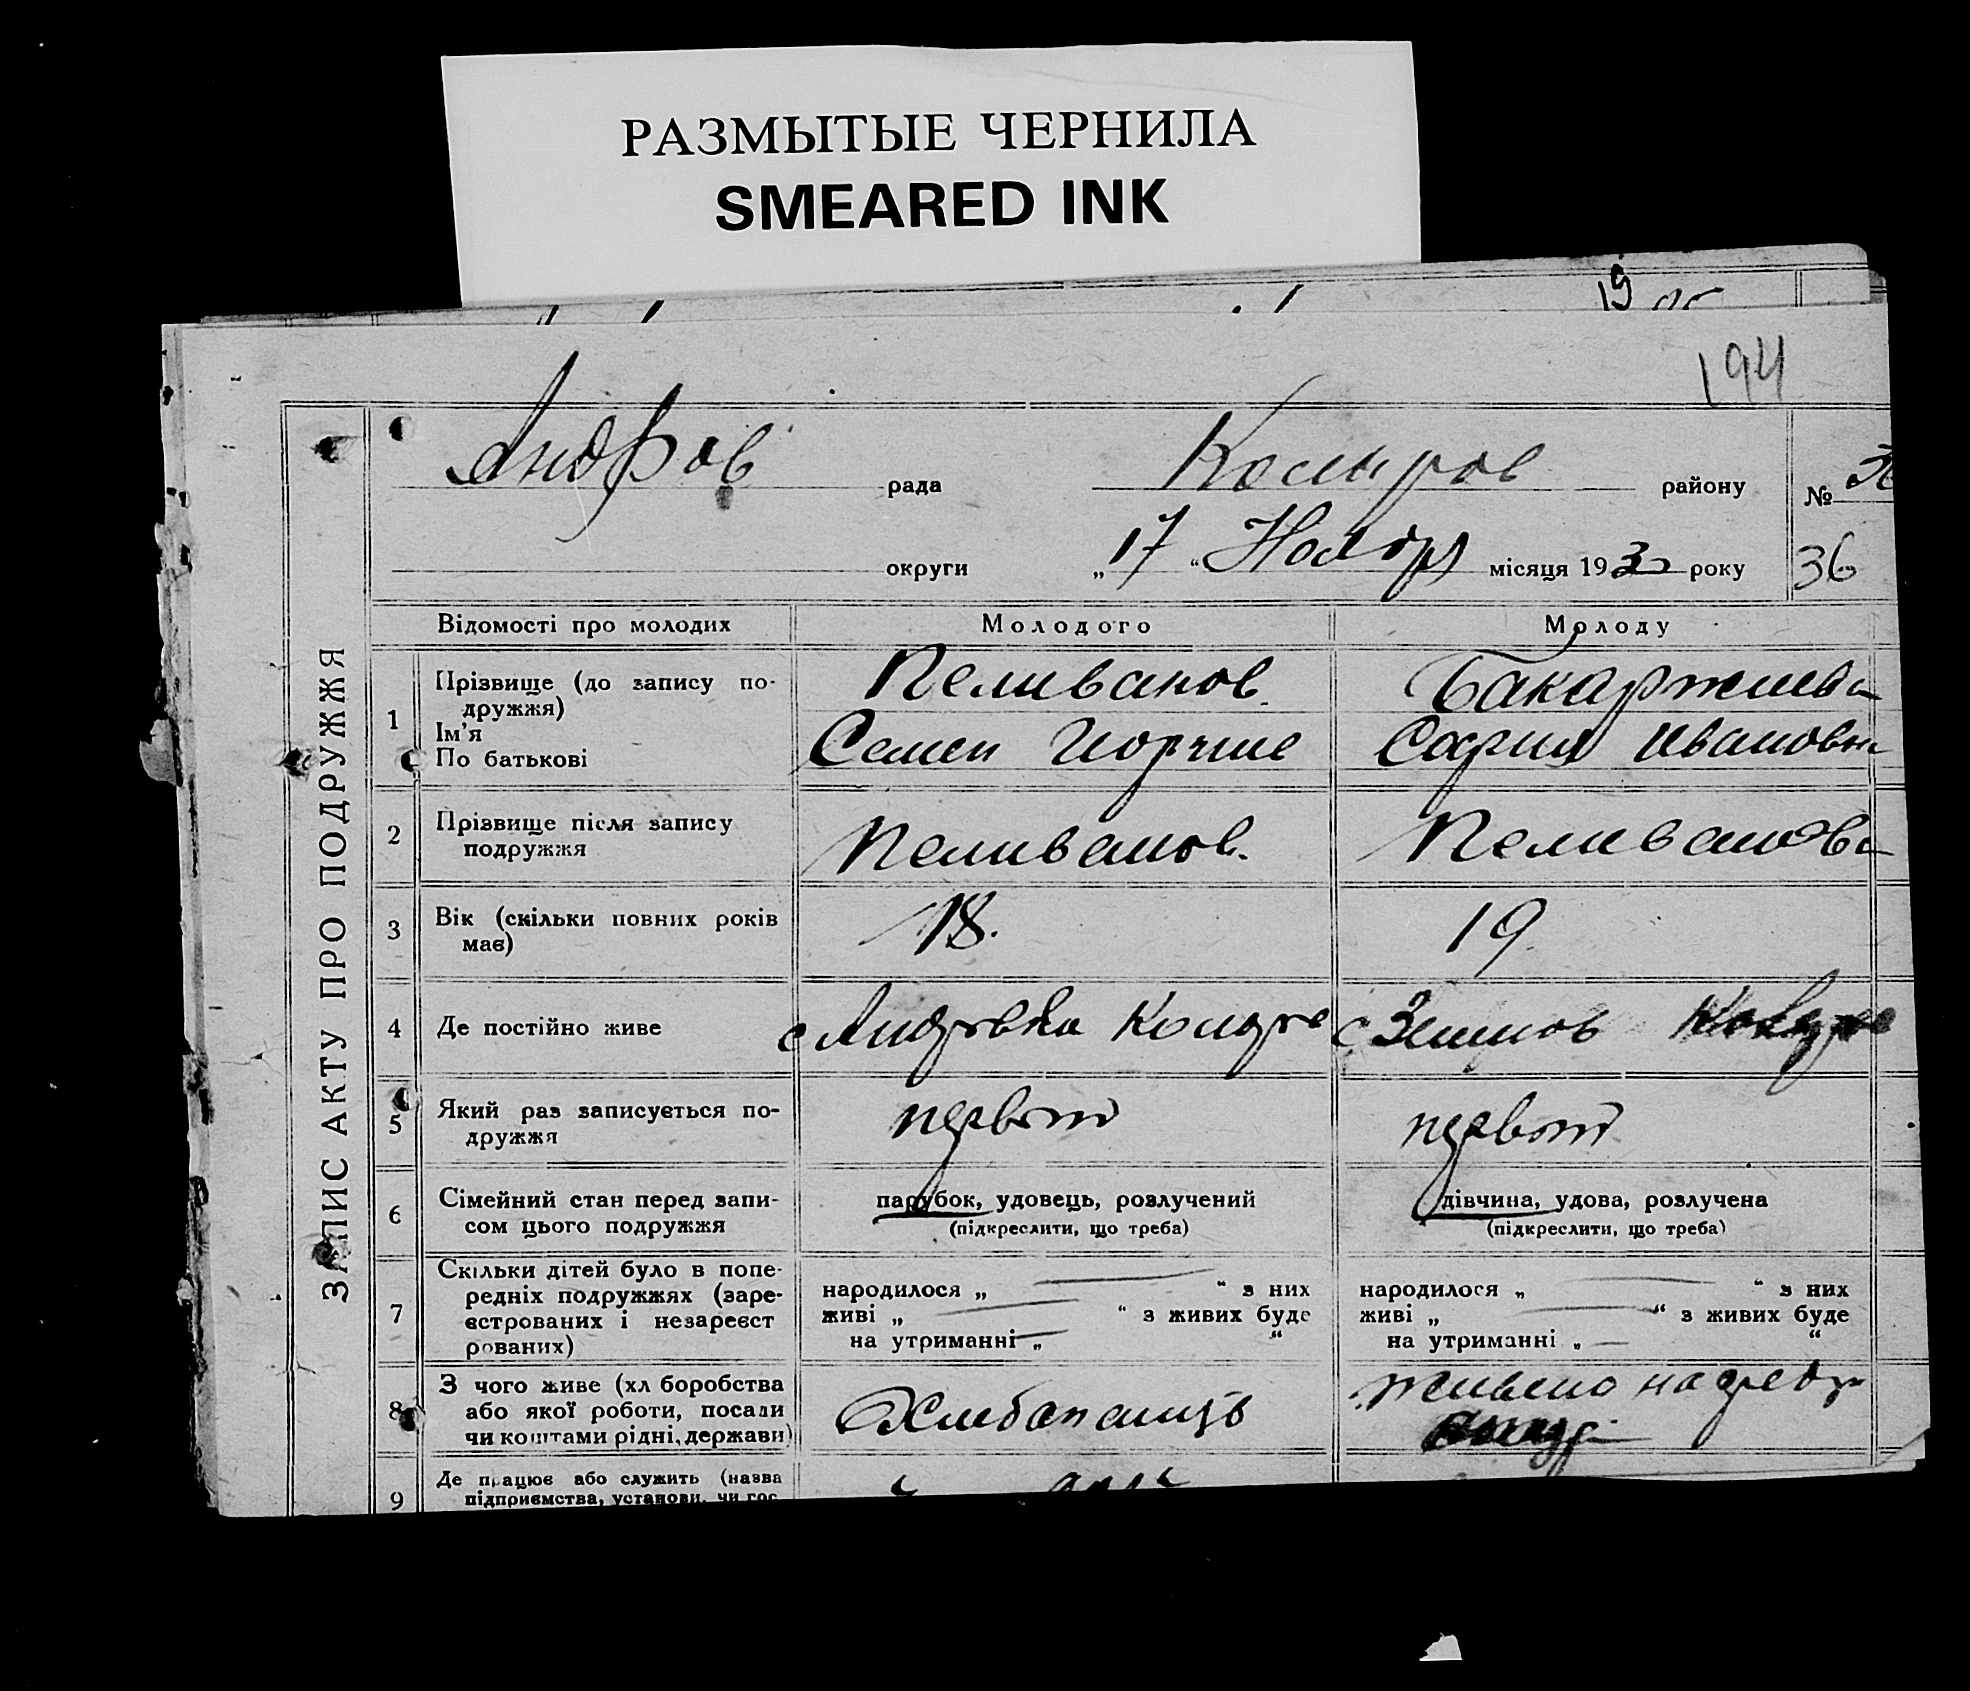 РАЗМЫТЫЕ ЧЕРНИЛА
SMEARED INK
194
Андров рада
районy №
округи „17“ Ноябр місяця 1932 року 36
ЗАПИС АКТУ ПРО ПОДРУЖЖЯ
Відомості про молодих Молодого Молоду
1 Прізвище (до запису по-
дружжя)
Ім'я
По батькові
Пеливанов
Семен
Бакаржиева
София Ивановна
2 Прізвище після запису
подружжя
Пеливанов.
Пеливанова
3 Вік (скільки повних років
має)
18.
19
4 Де постійно живе
с
с
5 Який раз записується по-
дружжя
первый
первый
6 Сімейний стан перед запи-
сом цього подружжя
парубок, удовець, розлучений
(підкреслити, що треба)
дівчина, удова, розлучена
(підкреслити, що треба)
7 Скільки дітей було в попе-
редніх подружжях (заре-
єстрованих і незареєст
рованих)
народилося „ “ з них
живі „ “ з живих буде
на утриманні „ “
народилося „ “ з них
живі „ “ з живих буде
на утриманні „ “
8 З чого живе (хл боробства
або якої роботи, посади
чи коштами рідні, держави)
Хлебопашец
на
9 Де працює або служить (назва
підприємства, установи, чи гос